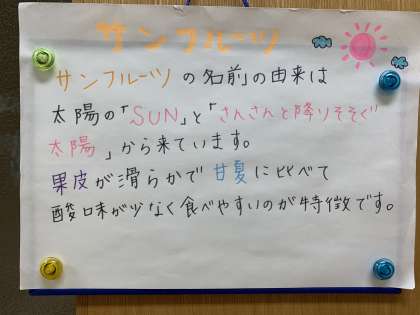 サンフルーツ
サンフルーツの名前の由来は
太陽の「SUN」と「さんさんと降りそそぐ
太陽」から来ています。
果皮が滑らかで甘夏に比べて
酸味が少なく食べやすいのが特徴です。